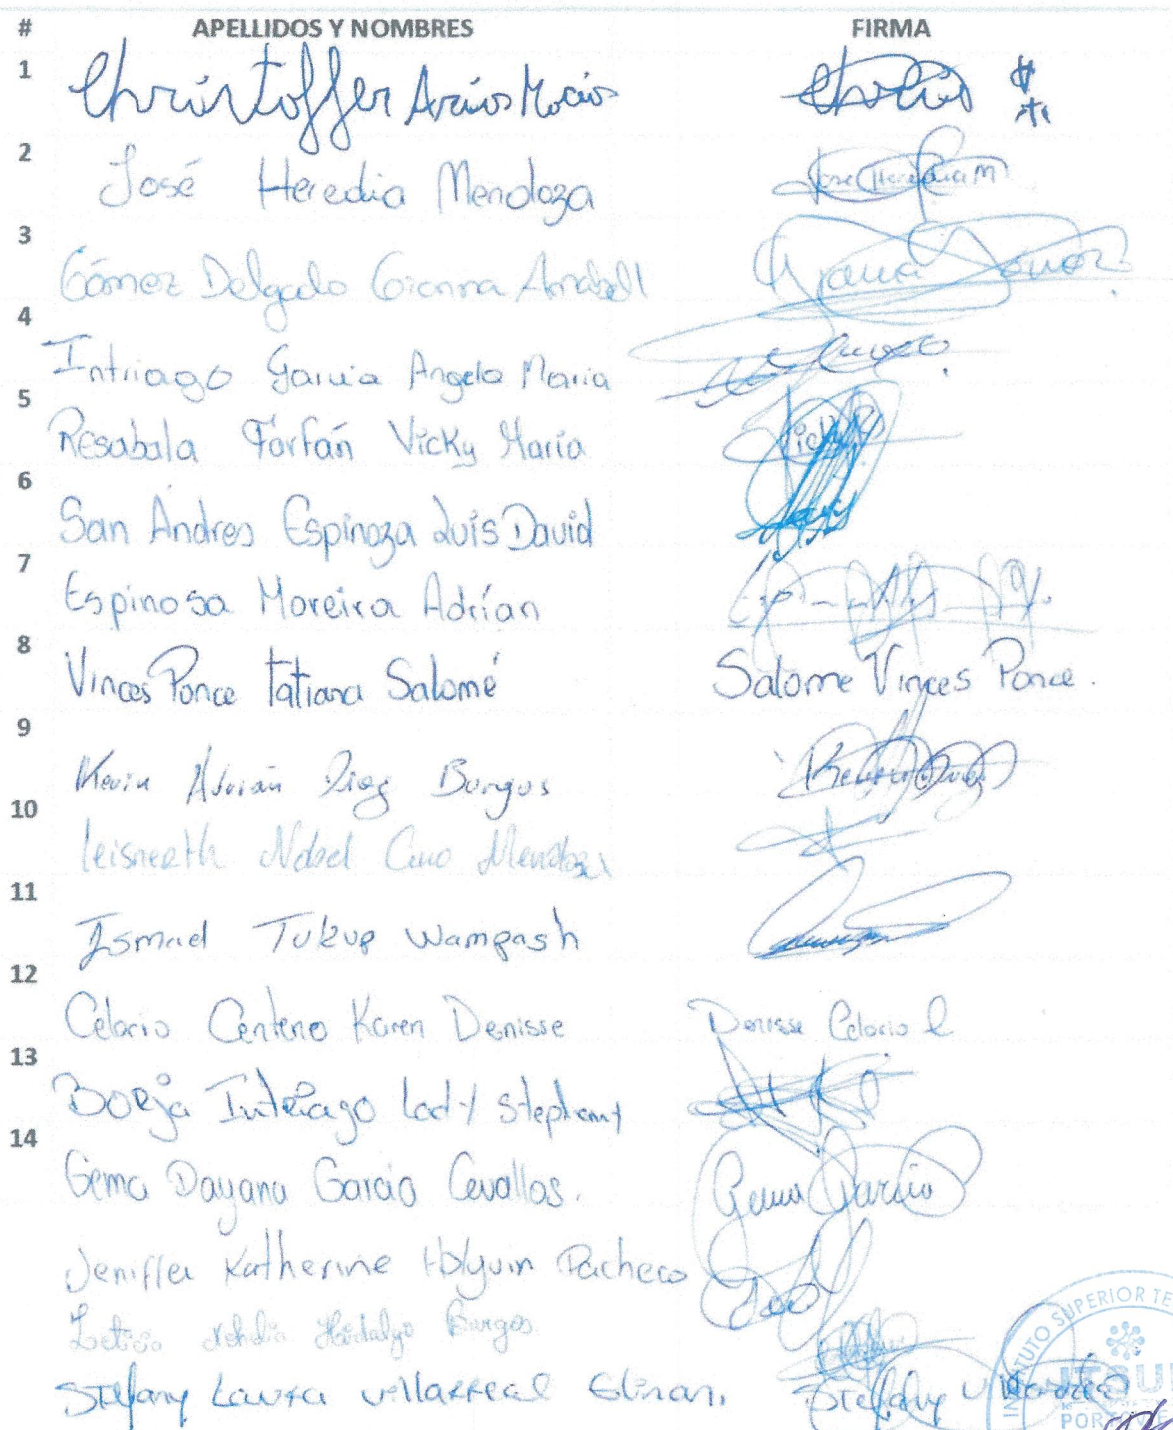 # APELLIDOS Y NOMBRES FIRMA
1 Christoffer Arcios Macios
2 José Heredia Mendoza Jose Heredia M
3 Gómez Delgado Gianna Anabell
4 Intriago Garcia Angela Maria
5 Resabala Farfán Vicky María Vicky
6 San Andres Espinoza Luis David
7 Espinosa Moreira Adrían
8 Vinces Ponce Tatiana Salomé Salome Vinces Ponce.
9 Kevin Adrián Diaz Burgos
10 Leisneeth Nobel Mendoza
11 Ismael Tukup Wampash
12 Celorio Centeno Karen Denisse Denisse Celorio C
13 Borja Intriago Lady Stephany
14 Gema Dayana Garcia Cevallos. Gema Garcia
Jeniffer Katherine Holguin Pacheco
Leticia Hidalgo Burgos
Stefany Laura Villarreal Stefany Villarreal
INSTITUTO SUPERIOR TE
ITSUP
PORTOVIE